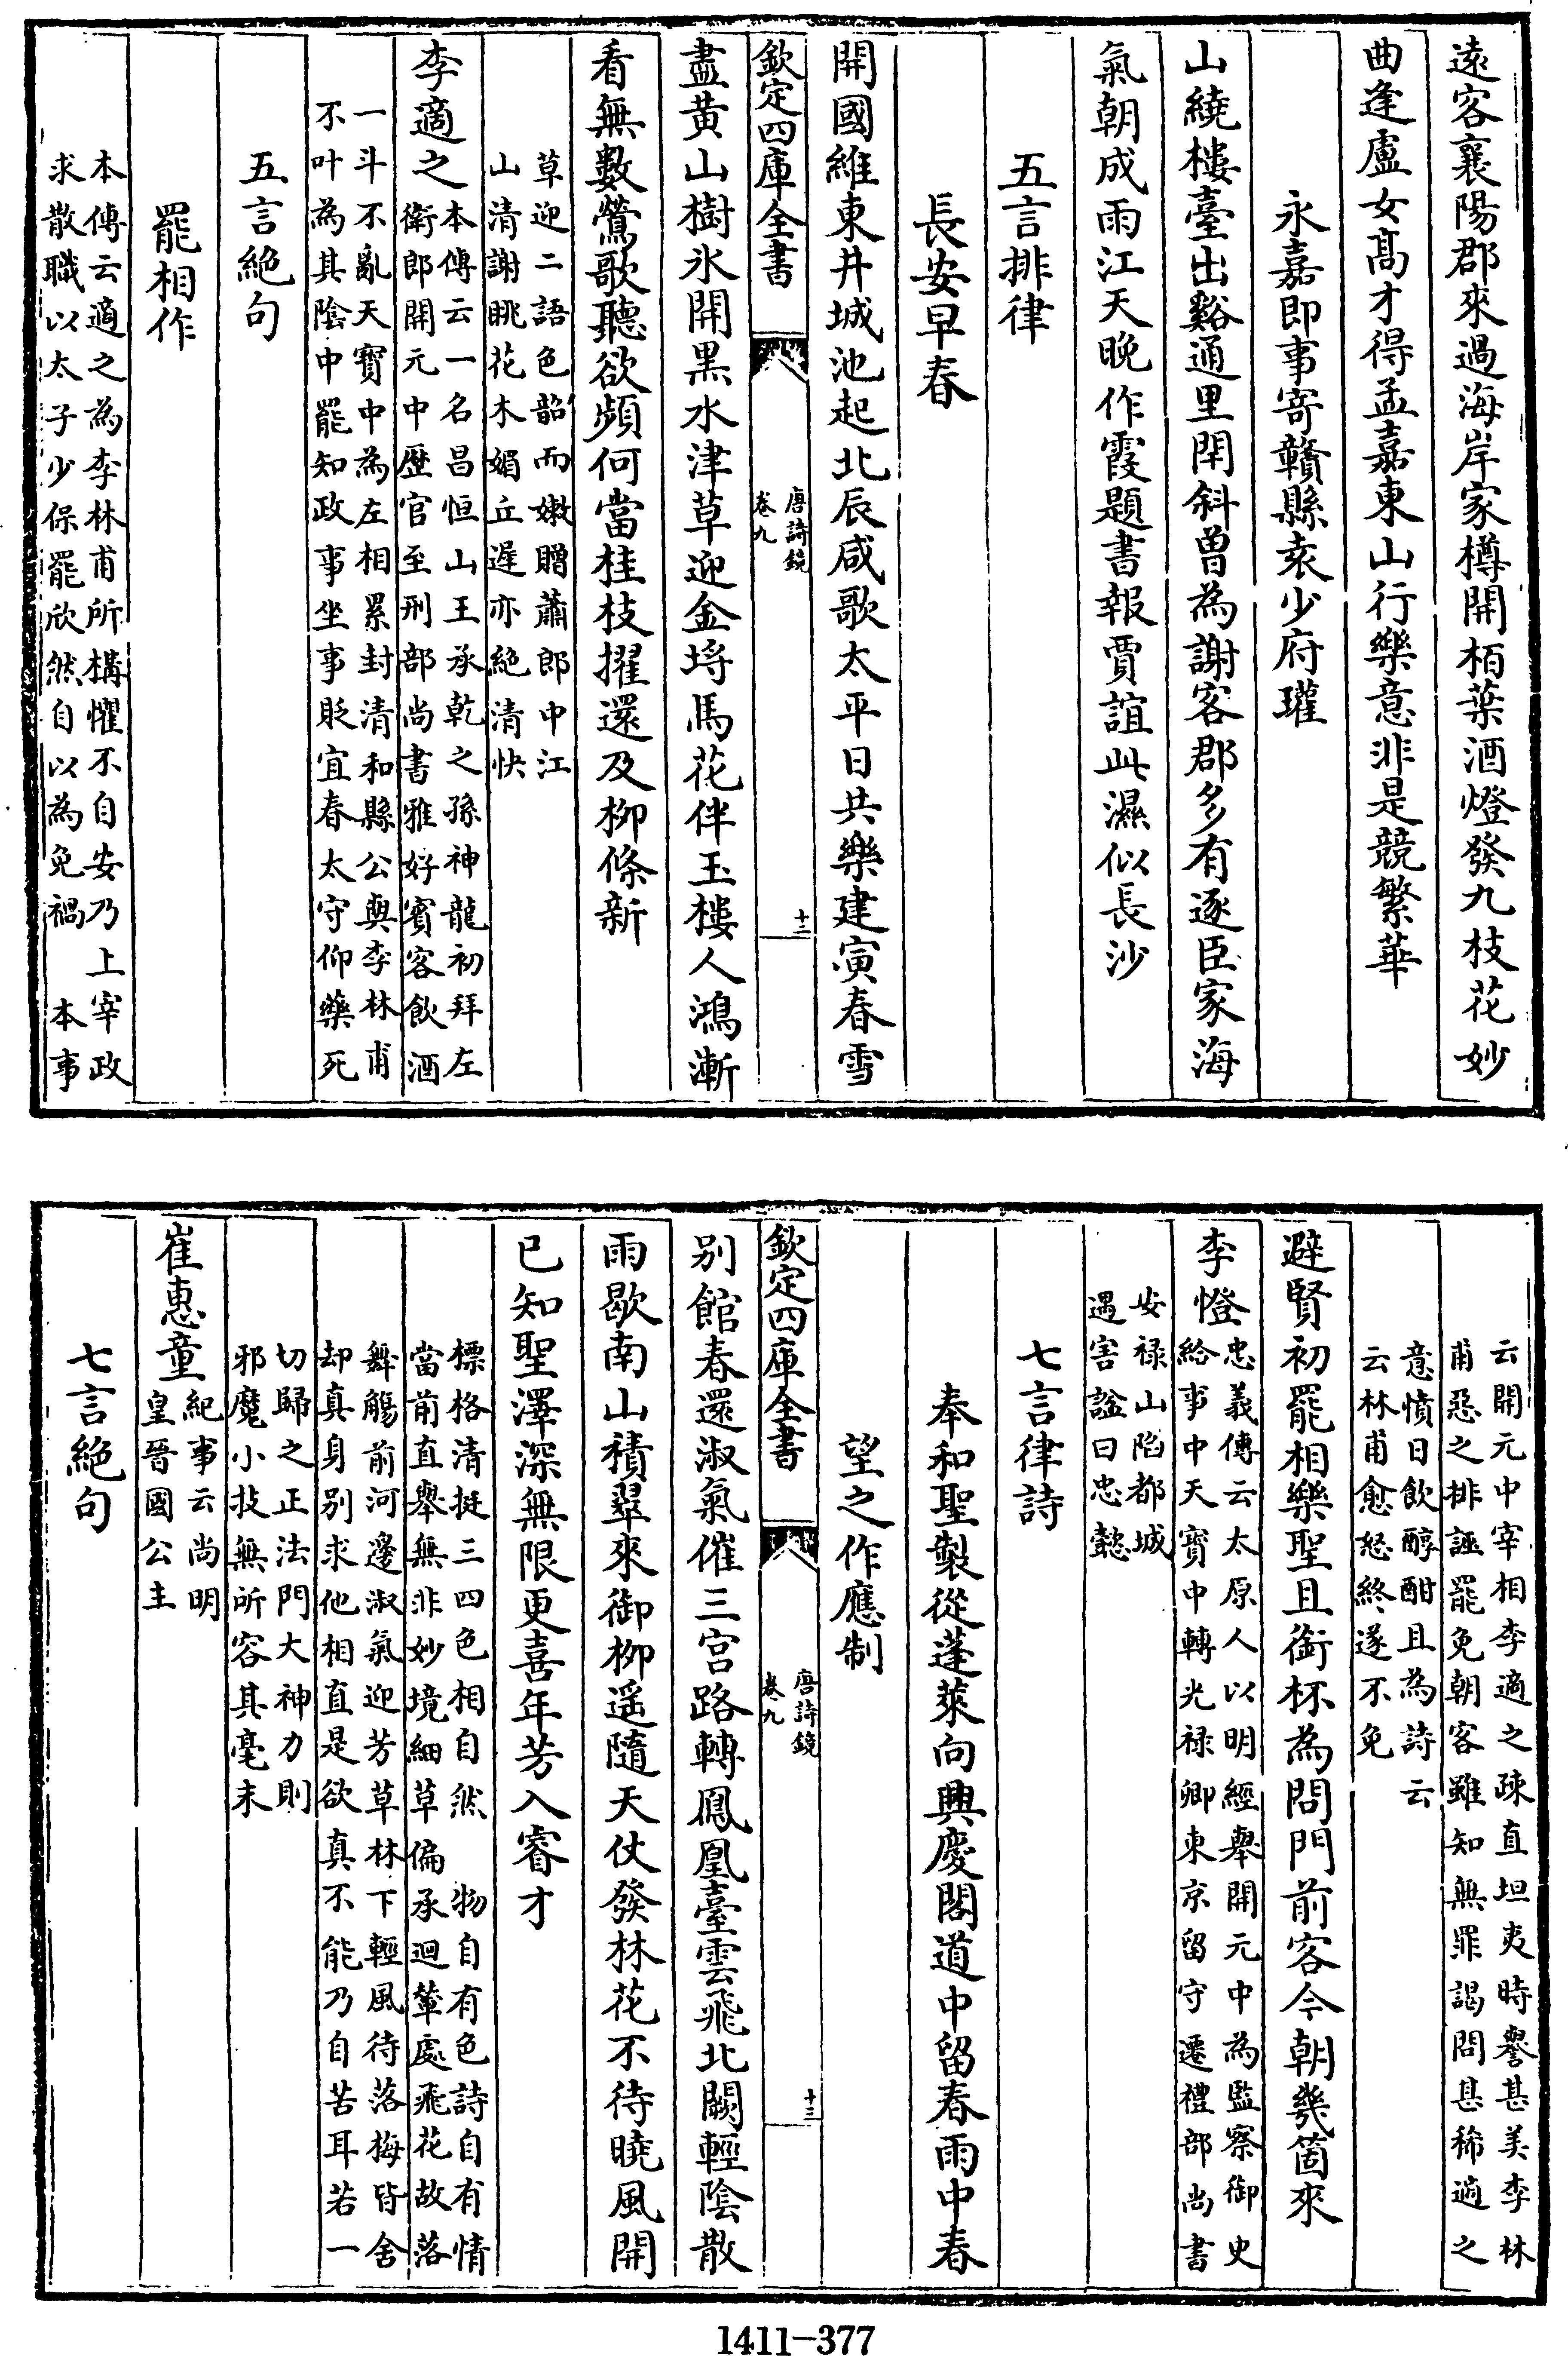 遠客襄陽郡來過海岸家樽開栢葉酒燈發九枝花妙
曲逢盧女髙才得孟嘉東山行樂意非是競繁華
永嘉即事寄贛縣袁少府瓘
山繞樓臺出谿通里閈斜曽為謝客郡多有逐臣家海
氣朝成雨江天晚作霞題書報賈誼此濕似長沙
五言排律
長安早春
開國維東井城池起北辰咸歌太平日共樂建寅春雪
欽定四庫全書
唐詩鏡
卷九
十二
盡黃山樹氷開黒水津草迎金埒馬花伴玉樓人鴻漸
看無數鶯歌聽欲頻何當桂枝擢還及栁條新
草迎二語色韶而嫩贈蕭郎中江
山清謝眺花木媚丘遲亦絶清快
李適之
本傳云一名昌恒山王承乾之孫神龍初拜左
衛郎開元中歴官至刑部尚書雅好賓客飲酒
一斗不亂天寳中為左相累封清和縣公與李林甫
不叶為其隂中罷知政事坐事貶宜春太守仰藥死
五言絶句
罷相作
本傳云適之為李林甫所搆懼不自安乃上宰政
求散職以太子少保罷欣然自以為免禍　本事
云開元中宰相李適之疎直坦夷時譽甚美李林
甫惡之排誣罷免朝客雖知無罪謁問甚稀適之
意憤日飲醇酣且為詩云
云林甫愈怒終遂不免
避賢初罷相樂聖且銜杯為問門前客今朝幾箇來
李憕
忠義傳云太原人以明經舉開元中為監察御史
給事中天寳中轉光禄卿東京留守遷禮部尚書
安禄山陷都城
遇害謚曰忠懿
七言律詩
奉和聖製從蓬萊向興慶閣道中留春雨中春
望之作應制
欽定四庫全書
唐詩鏡
卷九
十三
别館春還淑氣催三宫路轉鳳凰臺雲飛北闕輕隂散
雨歇南山積翠來御栁遥隨天仗發林花不待曉風開
已知聖澤深無限更喜年芳入睿才
標格清挺三四色相自然　物自有色詩自有情
當前直舉無非妙境細草偏承迴輦處飛花故落
舞觴前河邊淑氣迎芳草林下輕風待落梅皆舍
却真身別求他相直是欲真不能乃自苦耳若一
切歸之正法門大神力則
邪魔小技無所容其毫末
崔惠童
紀事云尚明
皇晉國公主
七言絶句
1411-377